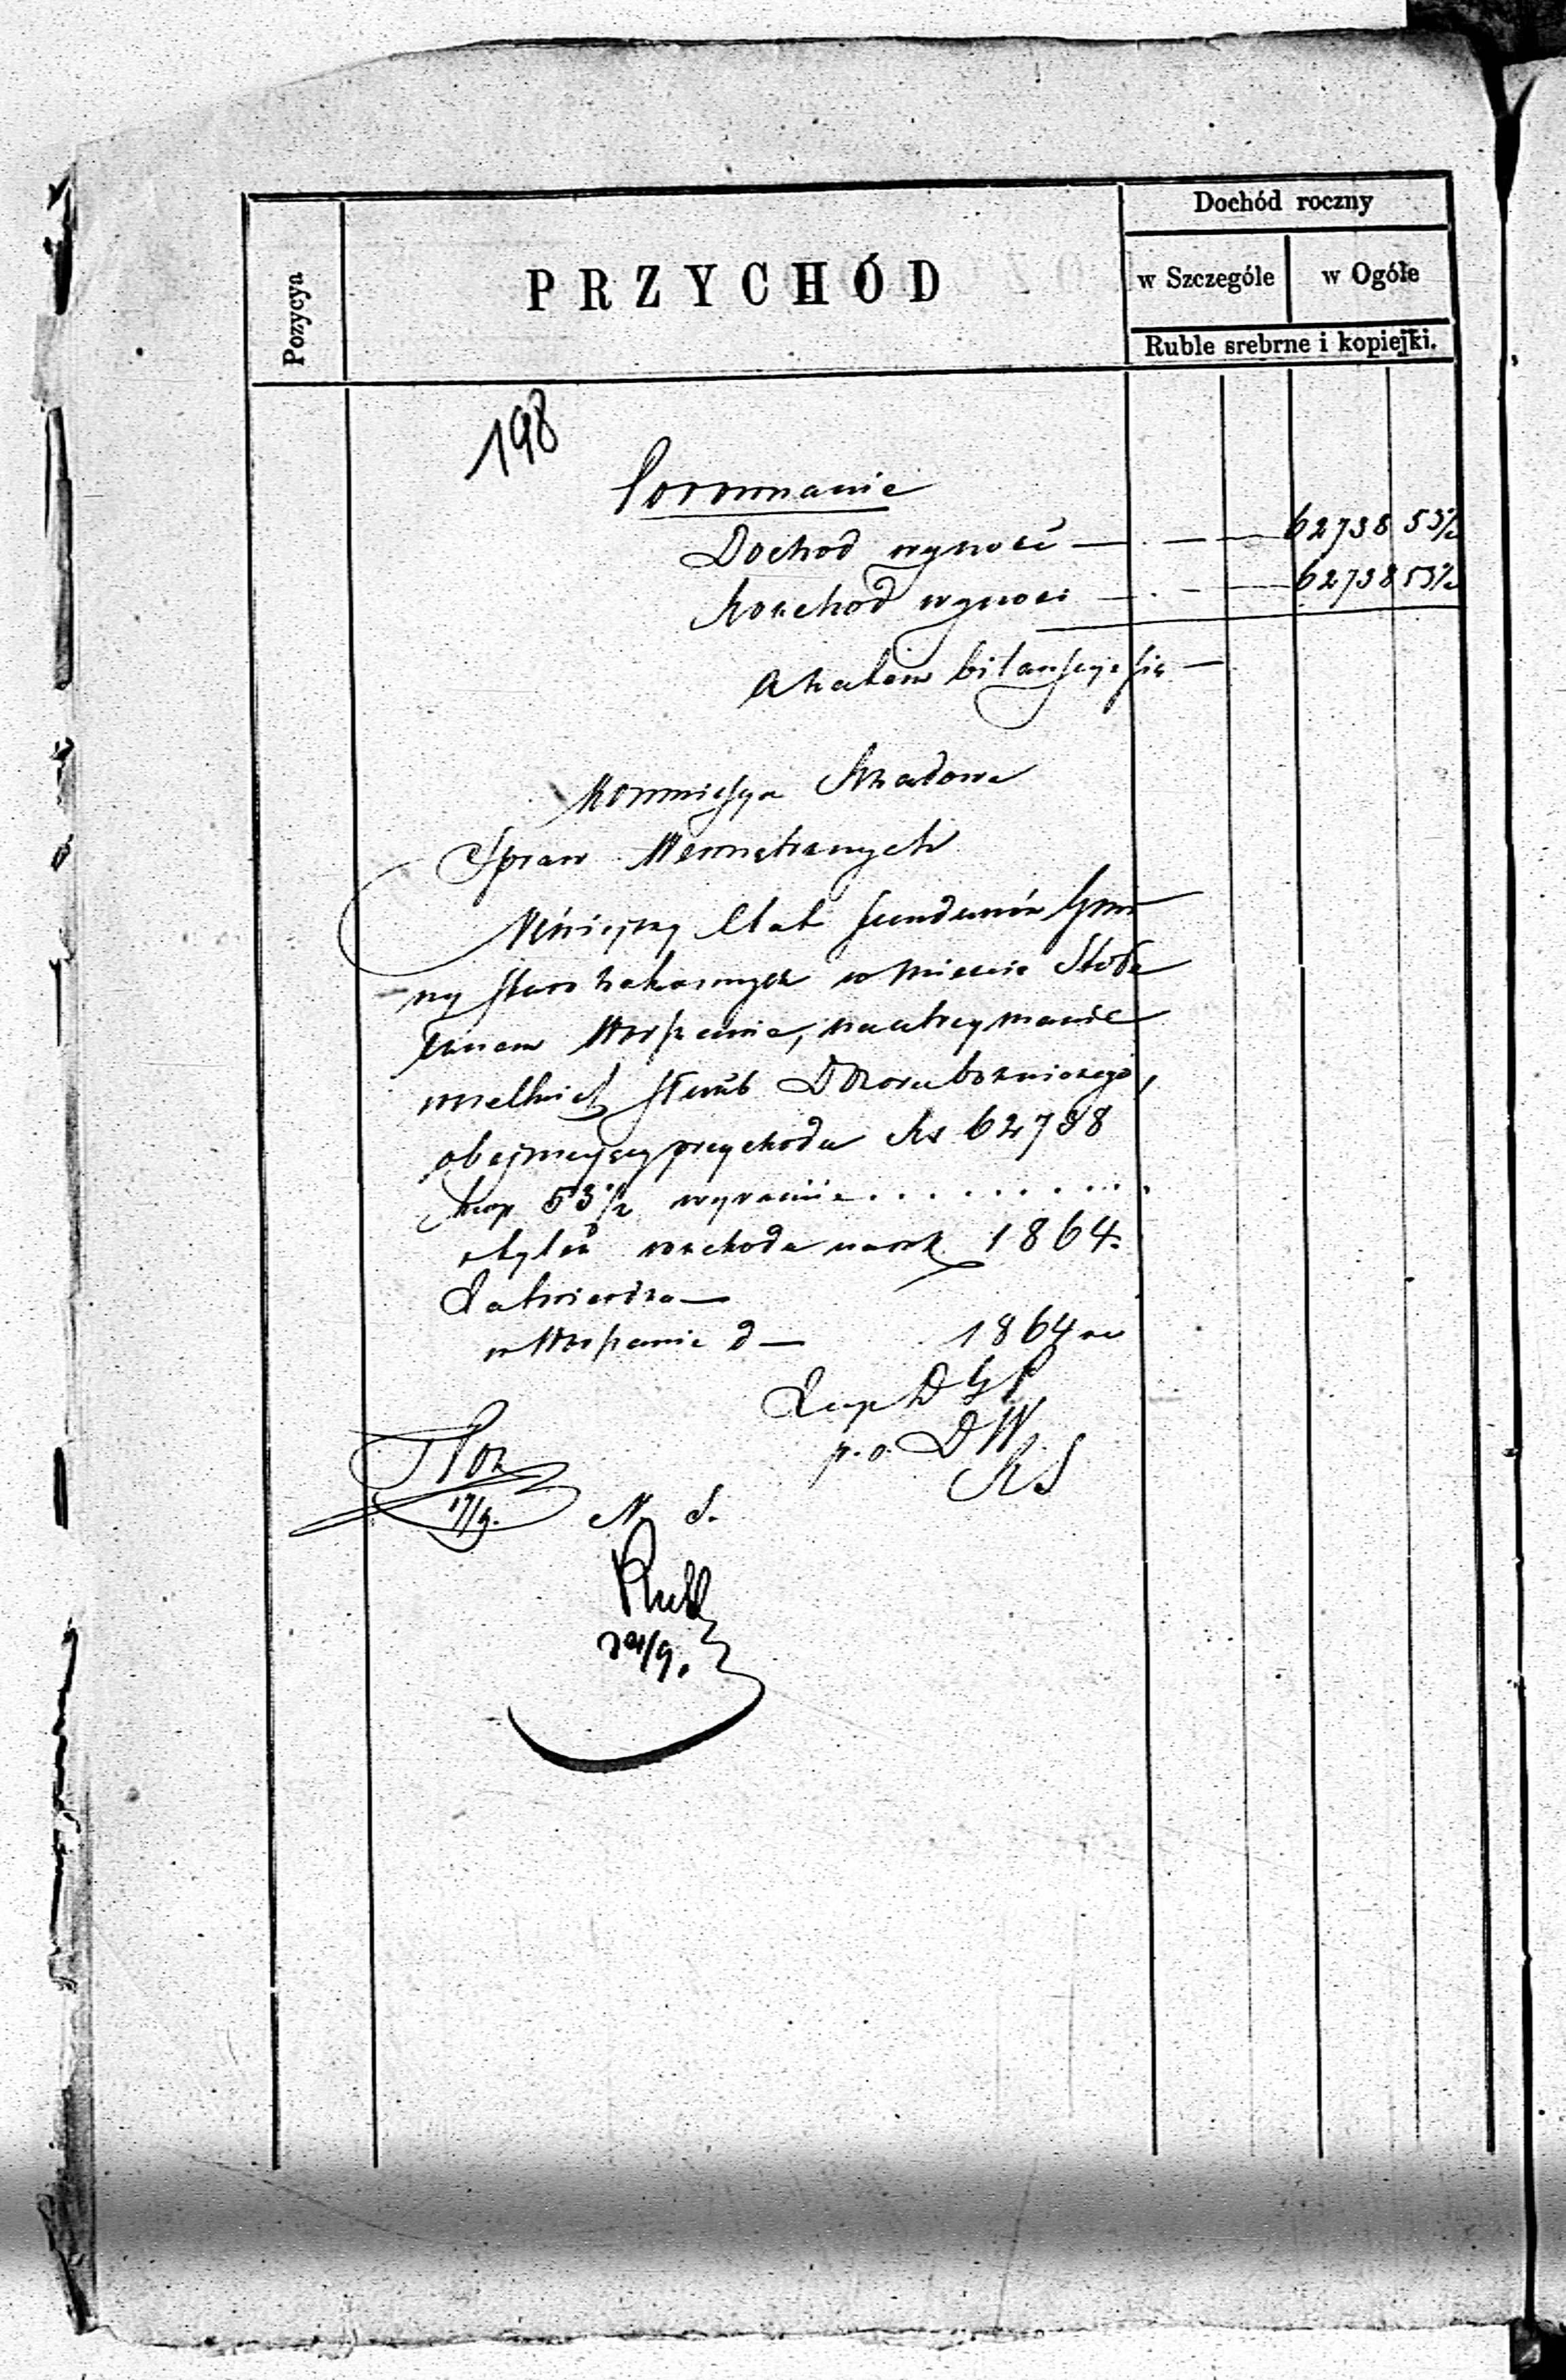 Dochód roczny
Pozycya
PRZYCHÓD
w Szczególe
w Ogóle
Ruble srebrne i kopiejki.
198
Porownanie
Dochod wynosi — . — — 62738 53½
Rozchod wynosi — . - — 62738 53½
A zatem bilansuje się —
Kommissya Rządowa
Spraw Wewnętrznych
Niniejszy Etat funduszów Gmi
ny Starozakonnych w Mieście Stołe
cznem Warszawie, na utrzymanie
wszelkich służb Dozoru bożniczego,
obejmujący przychodu Rs 62738
kop 53½ wyraźnie . . . . . . . . . .
i tyleż rozchodu na rok 1864.
Zatwierdza —
w Warszawie d — 1864 r
Zup D G P
p. o. D W
R S
17/9.
N. S.
24/9.